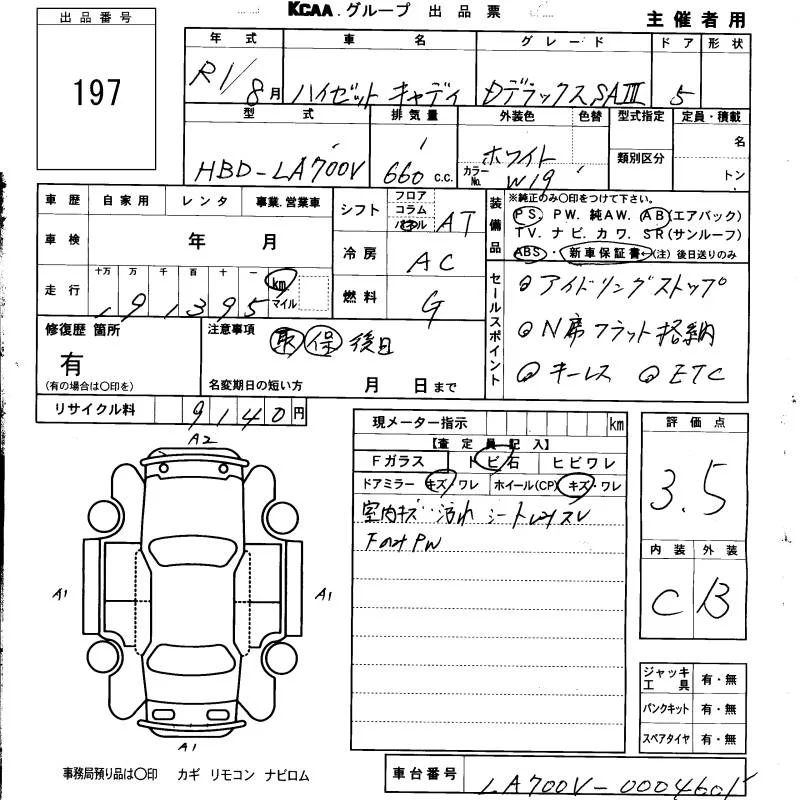 KCAA.グループ 出品票
主催者用
出品番号
197
年式 車名 グレード ドア 形状
R1/8月 ハイゼット キャディ Dデラックス SAIII 5
型式 排気量 外装色 色替 型式指定 定員・積載
HBD-LA700V 660 c.c. ホワイト カラーNo. W19 類別区分 名 トン
車歴 自家用 レンタ 事業.営業車
車検 年 月
走行 十万 万 千 百 十 一 km マイル
191395
シフト フロア コラム パネル AT
冷房 AC
燃料 G
装備品 ※純正のみ○印をつけて下さい。
PS. PW. 純AW. AB(エアバック)
TV. ナビ. カワ. SR(サンルーフ)
ABS・新車保証書←(注)後日送りのみ
セールスポイント
アイドリングストップ
N席フラット格納
キーレス ETC
修復歴 箇所
有
(有の場合は○印を)
注意事項 取 保 後日
名変期日の短い方 月 日まで
リサイクル料 9140円
A2
A1
A1
A1
現メーター指示 km
【査定員記入】
Fガラス トビ石 ヒビワレ
ドアミラー キズ・ワレ ホイール(CP) キズ・ワレ
室内キズ・汚れ シート
FのみPW
評価点
3.5
内装 外装
C B
ジャッキ工具 有・無
パンクキット 有・無
スペアタイヤ 有・無
事務局預り品は○印 カギ リモコン ナビロム
車台番号 LA700V-0004601